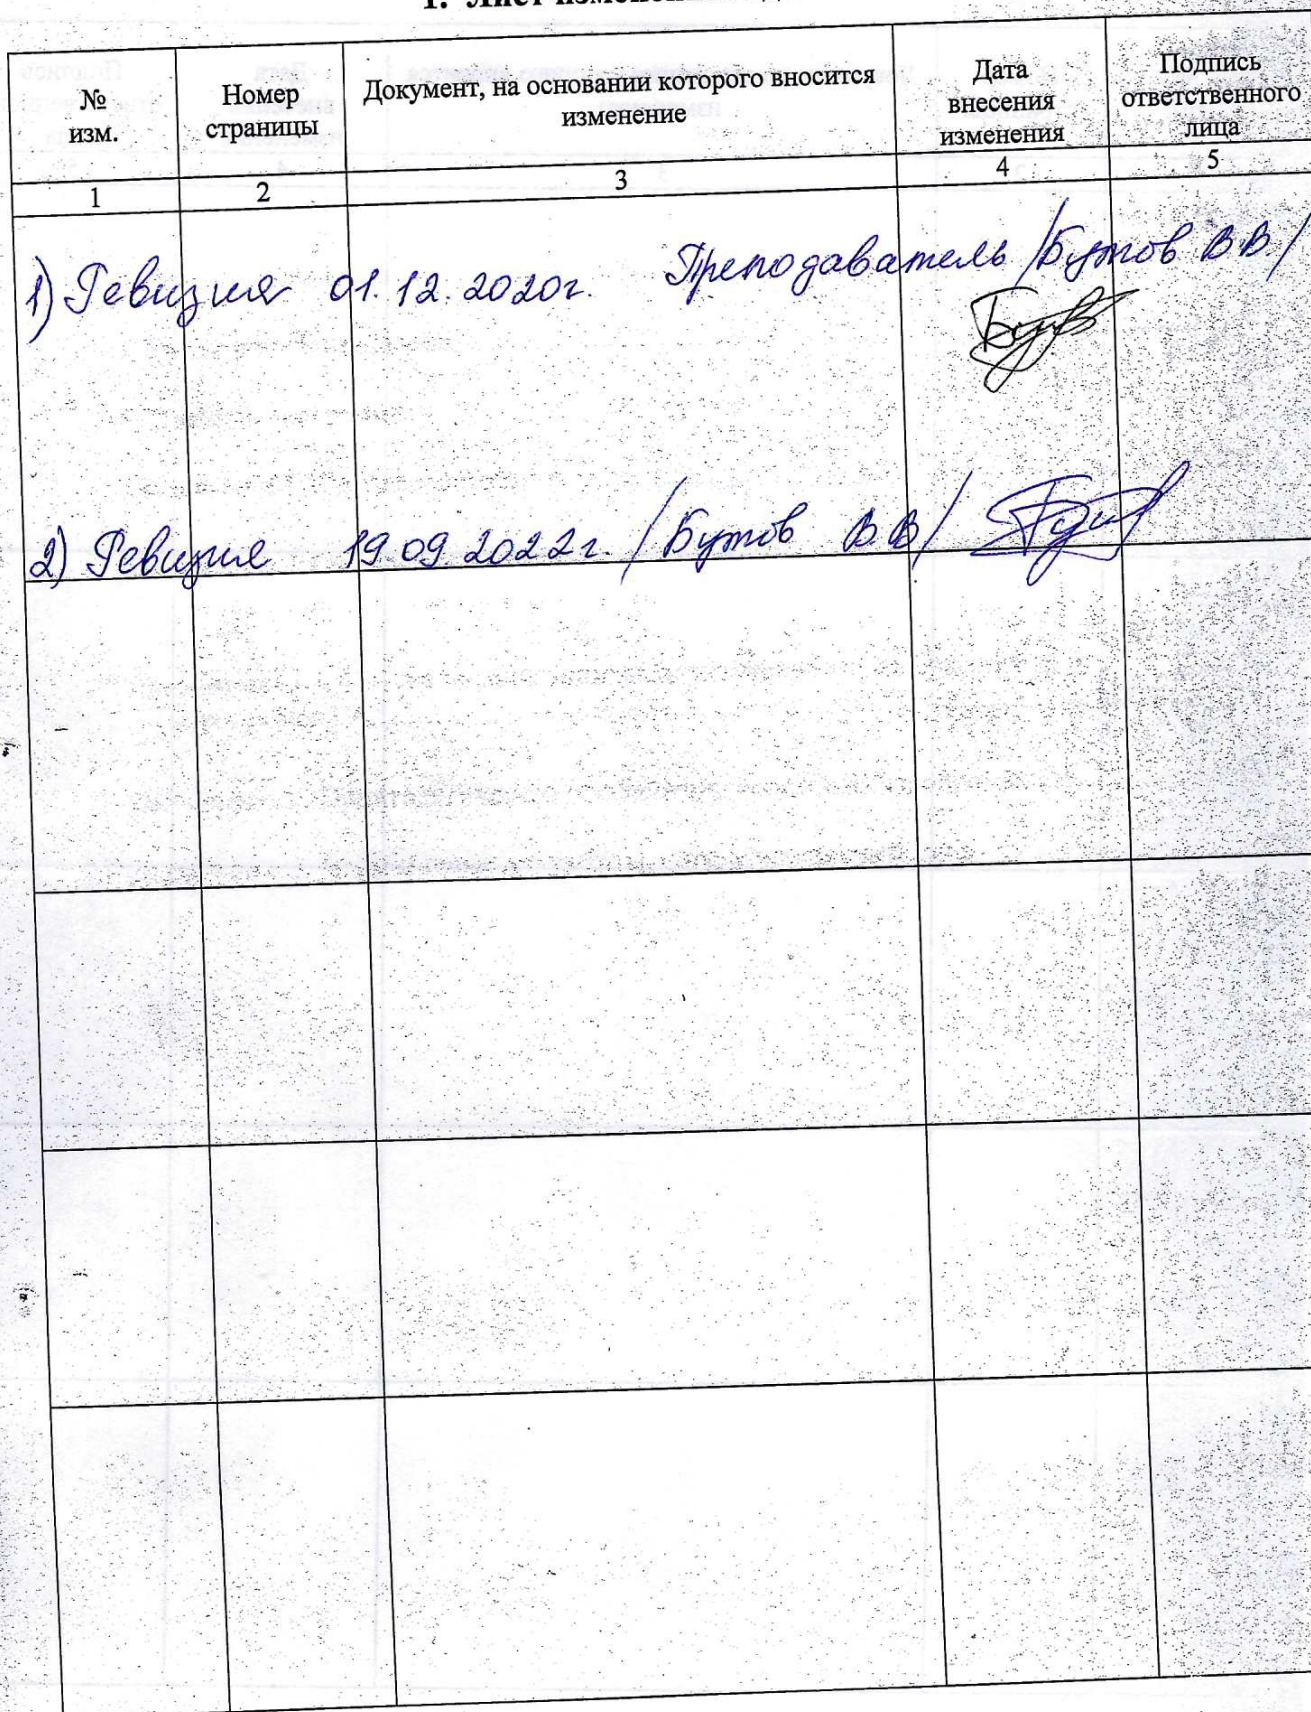 1. Лист
№ изм.
Номер страницы
Документ, на основании которого вносится изменение
Дата внесения изменения
Подпись ответственного лица
1 2 3 4 5
1) Ревизия 01.12.2020г. Преподаватель /Бутов В.В./
2) Ревизия 19.09.2022г. /Бутов В.В/